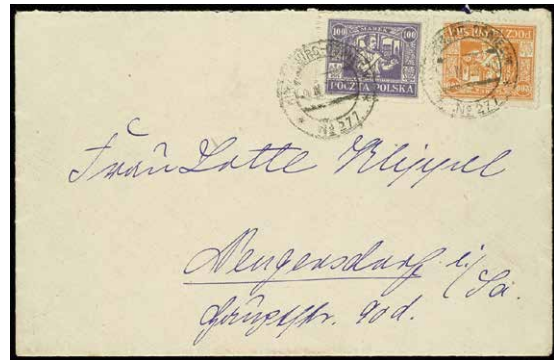 100 MAREK 100
POCZTA POLSKA
POCZTA POLSKA
No 277
No 277
Frau Lotte Klippel
Neugersdorf i/
Sa.
Hauptstr. 90d.